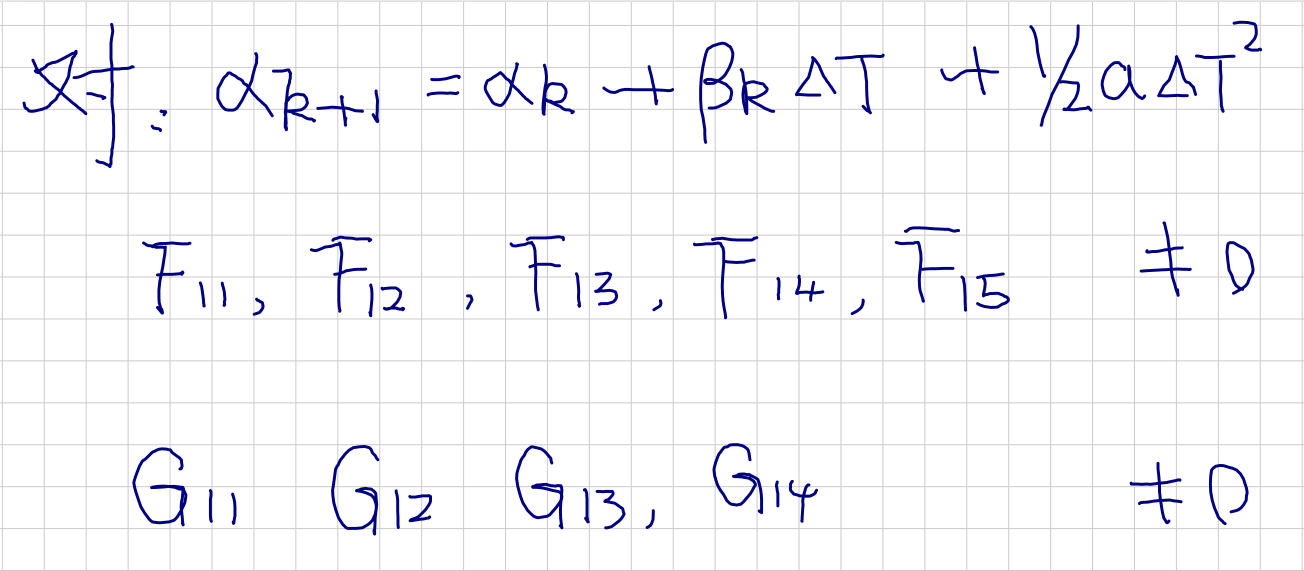 对: αk+1 = αk + βkΔT + ½aΔT²
F11, F12, F13, F14, F15 ≠0
G11 G12 G13, G14 ≠0